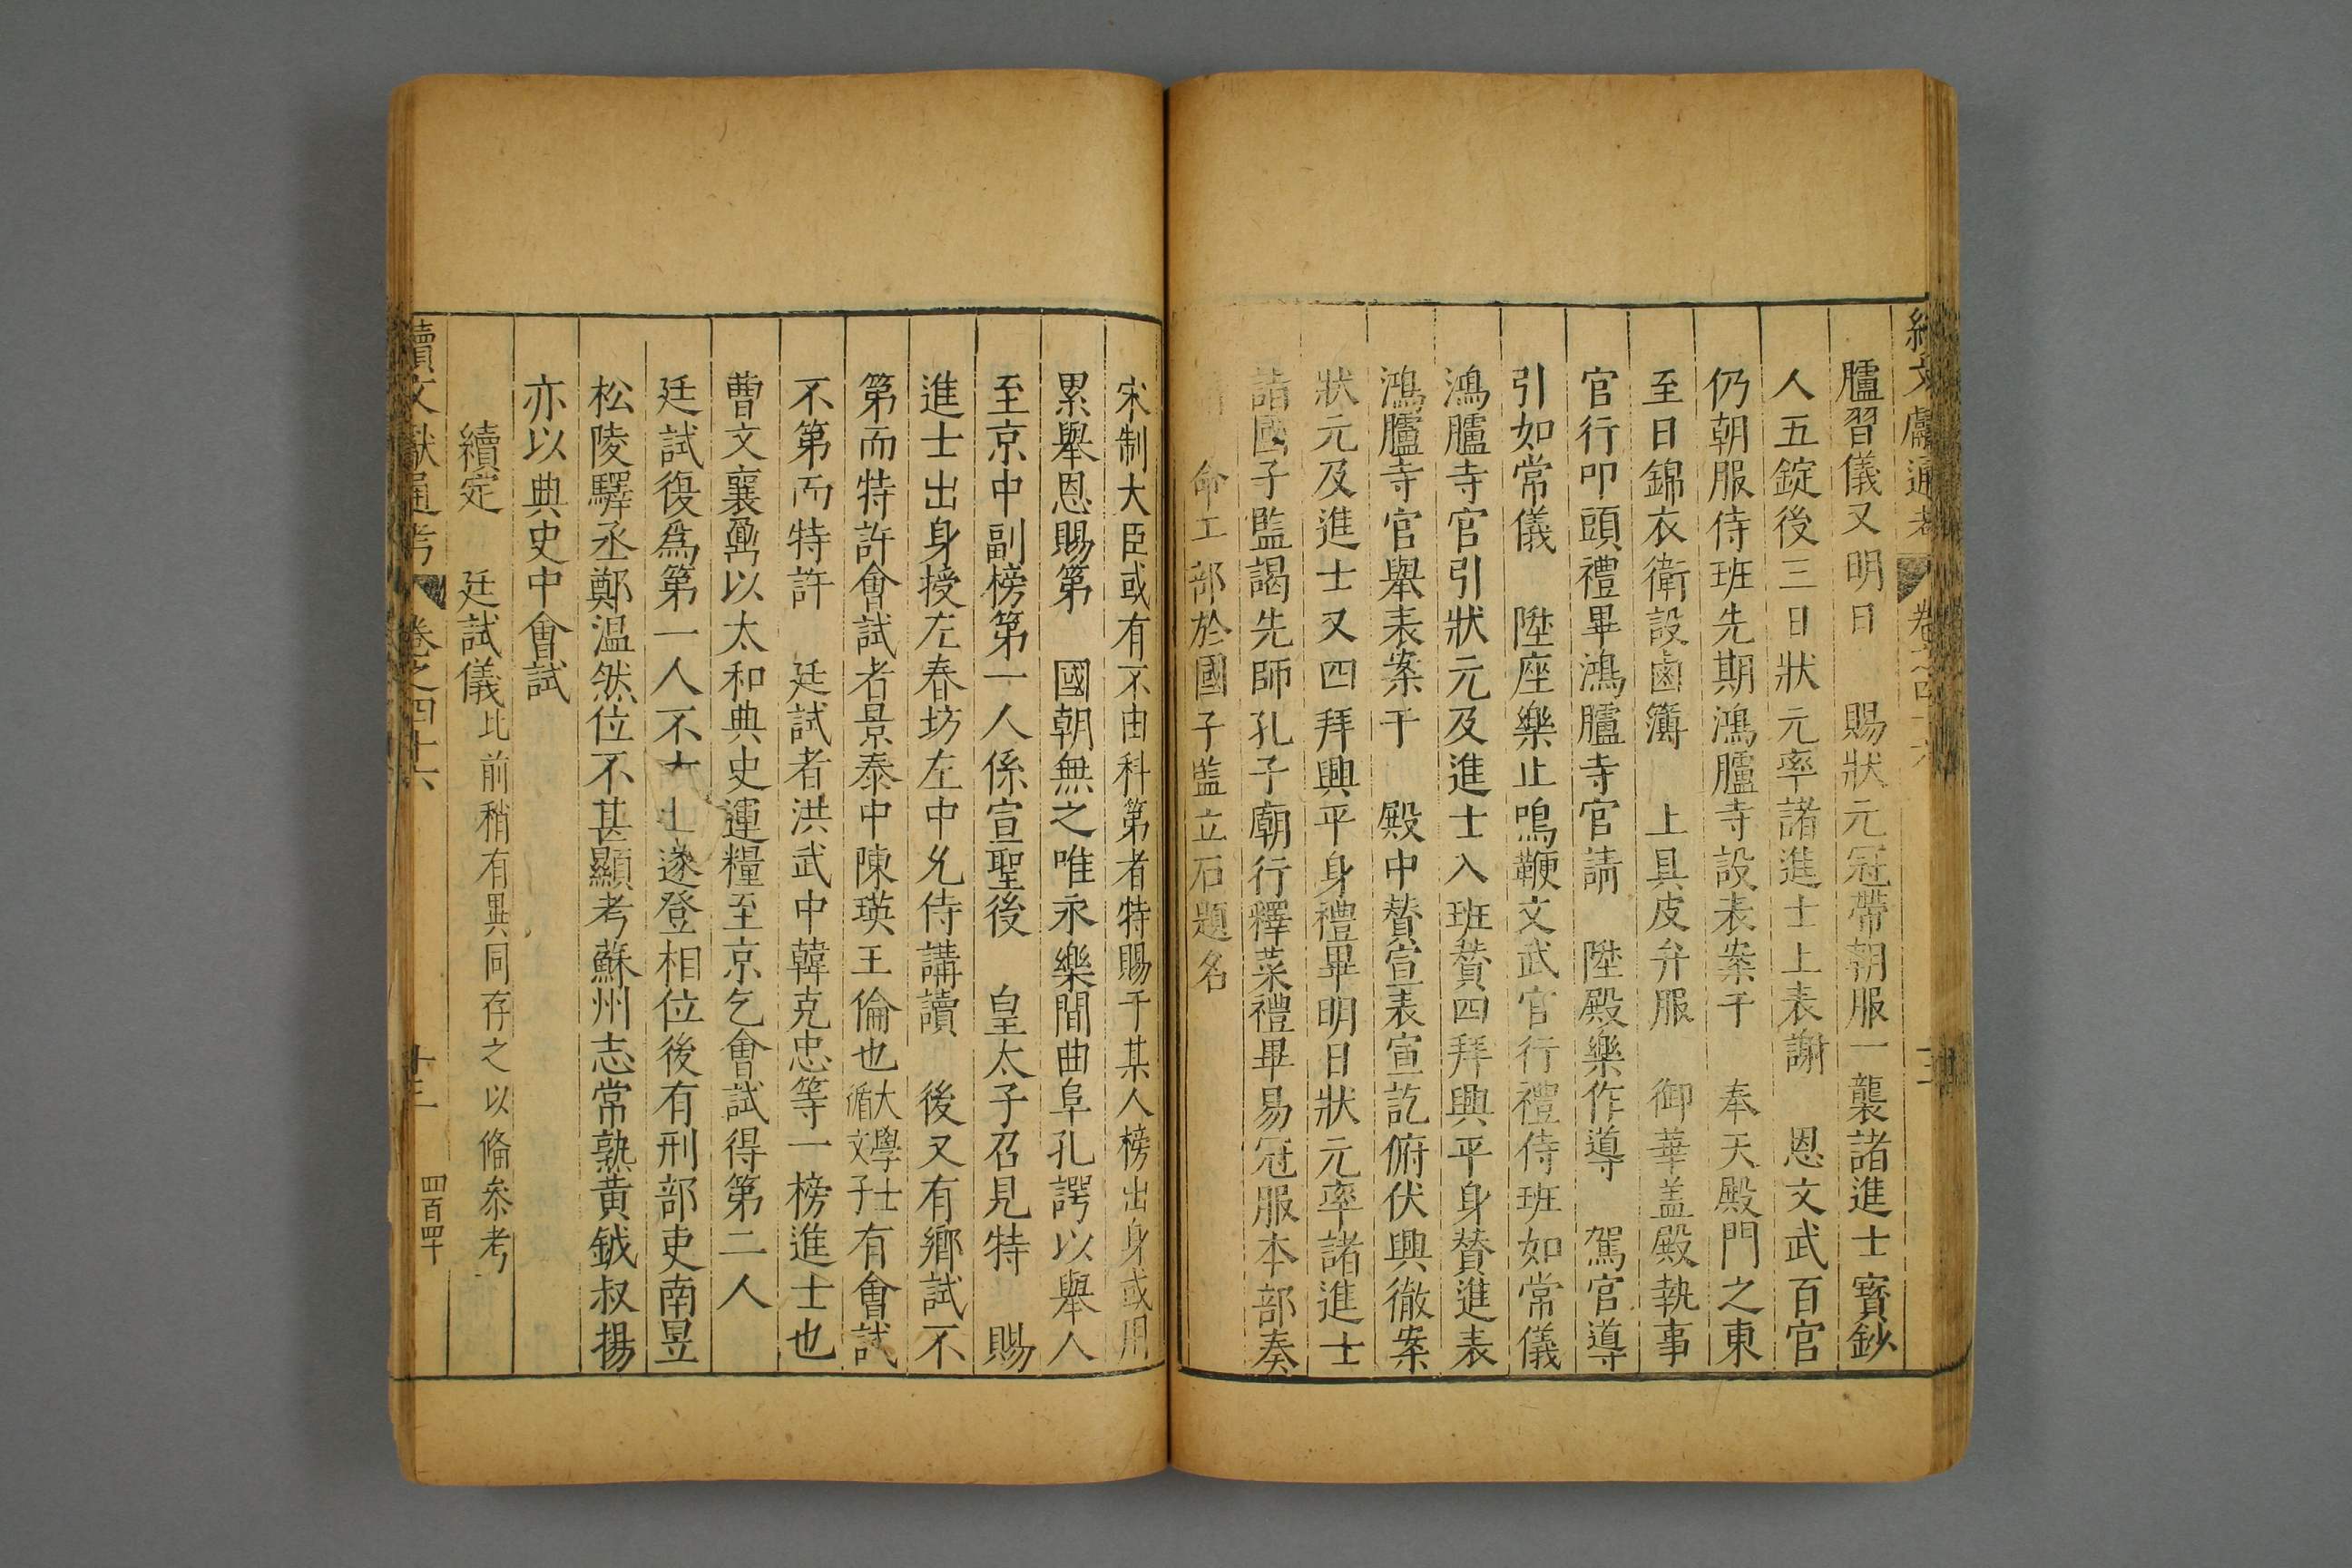 續文獻通考 卷之四十六
臚習儀又明日 賜狀元冠帶朝服一襲諸進士寳鈔
人五錠後三日狀元率諸進士上表謝 恩文武百官
仍朝服侍班先期鴻臚寺設表案于 奉天殿門之東
至日錦衣衛設鹵簿 上具皮弁服 御華盖殿執事
官行叩頭禮畢鴻臚寺官請 陞殿樂作導 駕官導
引如常儀 陞座樂止鳴鞭文武官行禮侍班如常儀
鴻臚寺官引狀元及進士入班贊四拜興平身贊進表
鴻臚寺官舉表案于 殿中贊宣表宣訖俯伏興徹案
狀元及進士又四拜興平身禮畢明日狀元率諸進士
詣國子監謁先師孔子廟行釋菜禮畢易冠服本部奏
請 命工部於國子監立石題名
宋制大臣或有不由科第者特賜于某人榜出身或用
累舉恩賜第 國朝無之唯永樂間曲阜孔諤以舉人
至京中副榜第一人係宣聖後 皇太子召見特 賜
進士出身授左春坊左中允侍講讀 後又有鄉試不
第而特許會試者景泰中陳瑛王倫也大學士循文子有會試
不第而特許 廷試者洪武中韓克忠等一榜進士也
曹文襄鼐以太和典史運糧至京乞會試得第二人
廷試復為第一人不 遂登相位後有刑部吏南昱
松陵驛丞鄭温然位不甚顯考蘇州志常熟黄鉞叔揚
亦以典史中會試
續定 廷試儀比前稍有異同存之以偹叅考
續文獻通考 卷之四十六 十三 四百四十